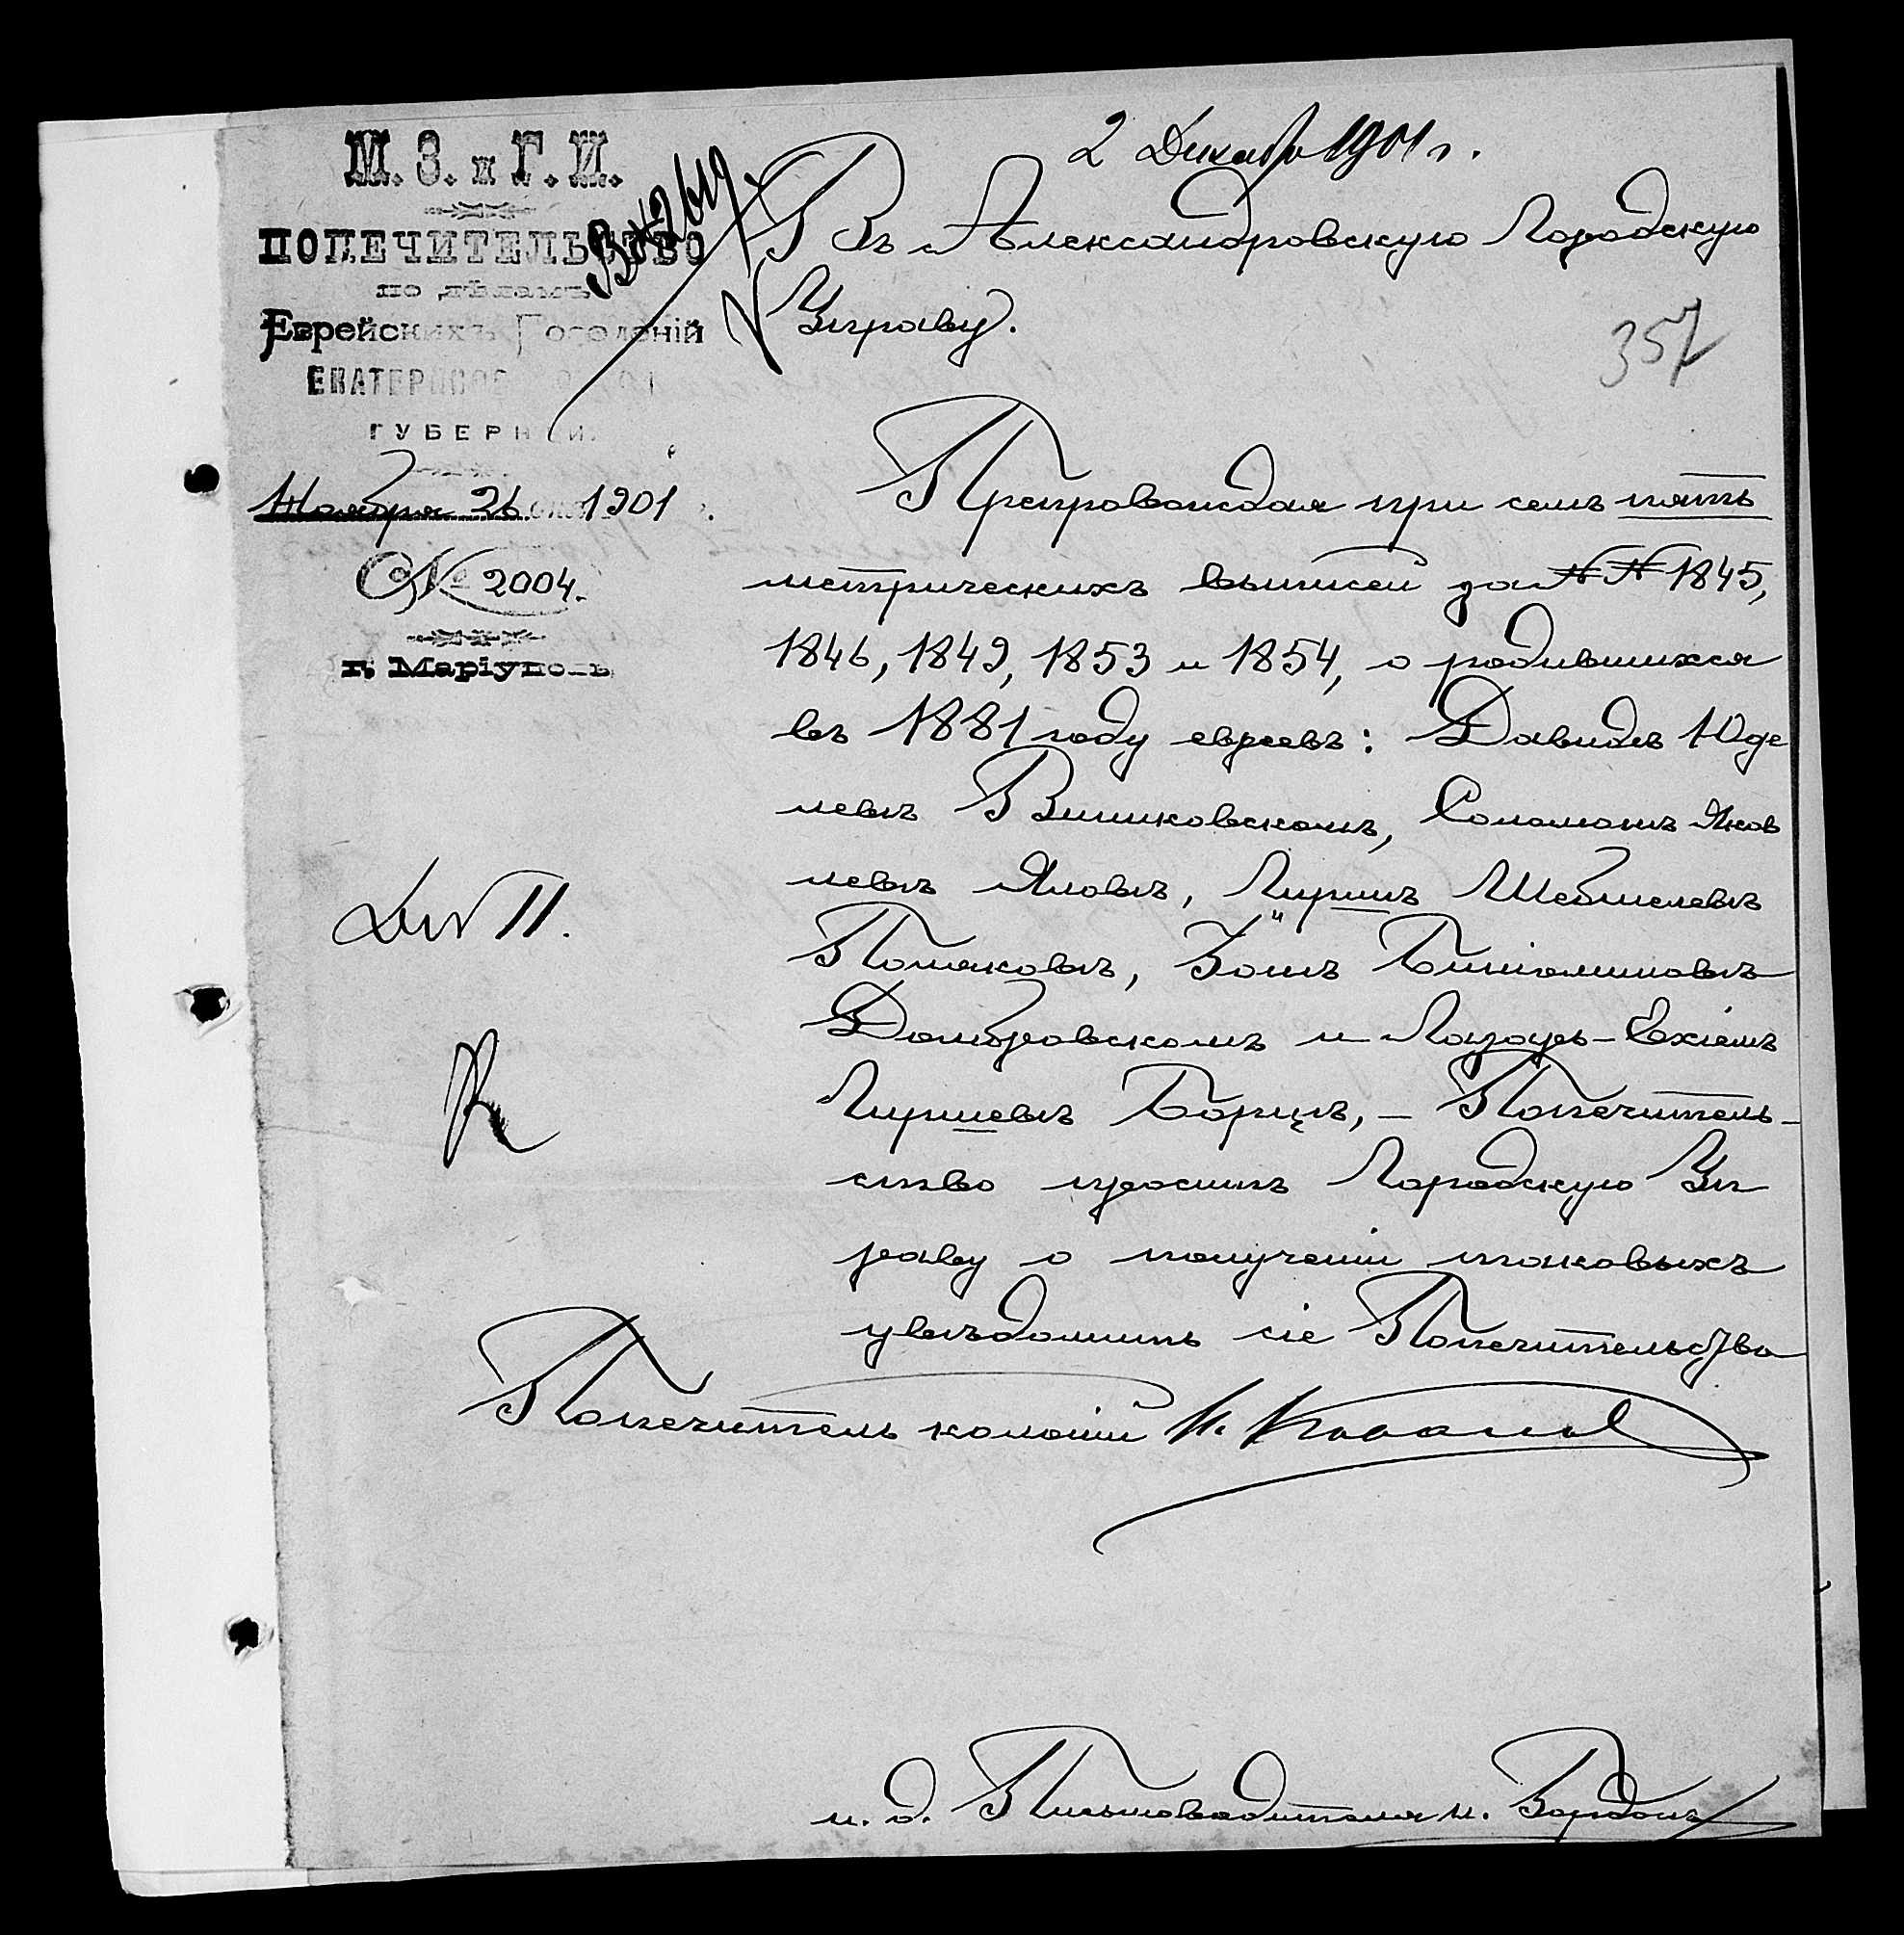 М. З. и Г. И.
ПОПЕЧИТЕЛЬСТВО
по дѣламъ
Еврейскихъ Поселеній
ЕКАТЕРИНОСЛАВСКОЙ
ГУБЕРНІИ.
Ноября 26 1901
№ 2004.
г. Маріуполь
2 Декабря 1901 г.
Въ Александровскую Городскую
Управу.
357
Препровождая при семъ пять
метрическихъ выписей за №№ 1845,
1846, 1849, 1853 и 1854, о родившихся
въ 1881 году евреевъ: Давидѣ Юде
левѣ Винниковскомъ, Соломонѣ Яков
левѣ Яловѣ, Гиршѣ Шебшелевѣ
Поляковѣ, Зомѣ Биніоминовѣ
Домбровскомъ и Лазарь-Ехіелѣ
Гиршевѣ Борцѣ, – Попечитель-
ство проситъ Городскую Уп
раву о полученіи таковыхъ
увѣдомить сіе Попечительство
Попечитель колоній
и. д. Письмоводителя И. Гордонъ